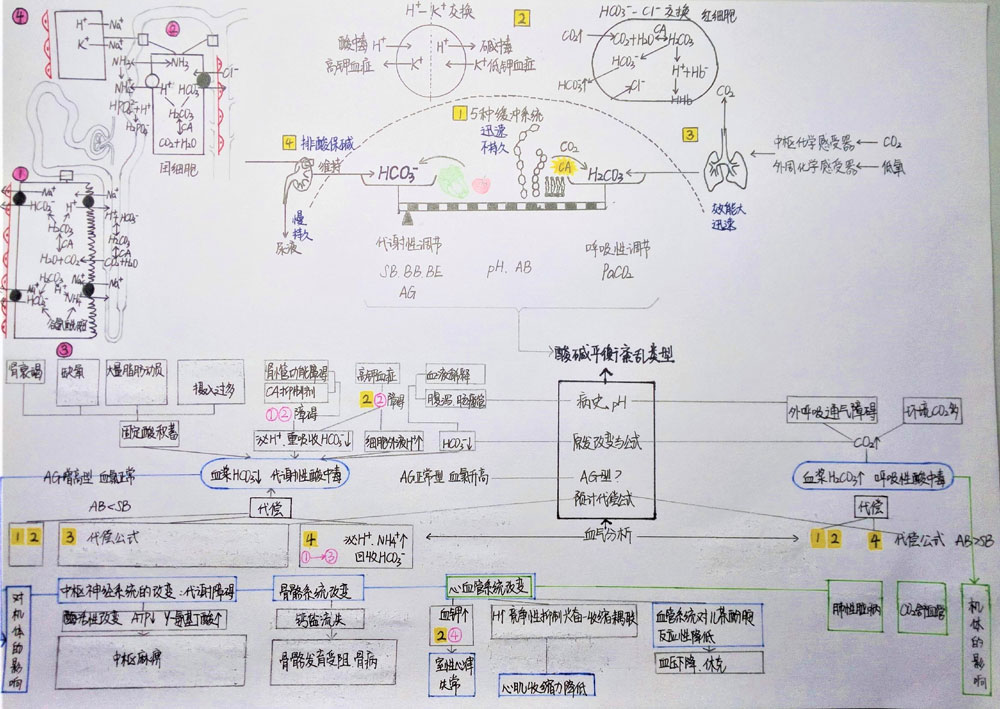 ④
H⁺ Na⁺
K⁺ Na⁺
②
NH₃ NH₃
NH₄⁺ H⁺ HCO₃⁻ Cl⁻
HPO₄²⁻+H⁺
H₂PO₄⁻
H₂CO₃
CA
CO₂+H₂O
闰细胞
①
Na⁺ Na⁺
HCO₃⁻ H⁺ H⁺ HCO₃⁻
H₂CO₃ H₂CO₃
CA CA
H₂O+CO₂ CO₂+H₂O
H₂CO₃ Na⁺
Na⁺ H⁺
HCO₃⁻ NH₄⁺
谷氨酰胺
③
H⁺-K⁺交换
2
酸中毒 H⁺ H⁺ 碱中毒
高钾血症 K⁺ K⁺ 低钾血症
HCO₃⁻-Cl⁻交换 红细胞
CO₂↑ CO₂+H₂O CA H₂CO₃
HCO₃⁻ H⁺+Hb⁻
HCO₃⁻↑ Cl⁻ HHb
1 5种缓冲系统
迅速
不持久
4 排酸保碱
维持
慢
持久
尿液
HCO₃⁻ CO₂ CA H₂CO₃
3
CO₂
中枢化学感受器 CO₂
外周化学感受器 低氧
效能大
迅速
代谢性调节 呼吸性调节
SB、BB、BE pH、AB PaCO₂
AG
酸碱平衡紊乱类型
病史、pH
原发改变与公式
AG型?
预计代偿公式
血气分析
肾衰竭 缺氧 大量脂肪动员 摄入过多
固定酸积蓄
肾小管功能障碍
CA抑制剂
①②障碍
泌H⁺、重吸收HCO₃⁻↓
高钾血症
2②障碍
细胞外液H⁺↑
血液稀释
腹泻、肠瘘管
HCO₃⁻↓
AG增高型 血氯正常 血浆HCO₃⁻↓ 代谢性酸中毒 AG正常型 血氯升高
AB<SB
代偿
1 2
3 代偿公式
4 泌H⁺、NH₄⁺↑
①→③ 回收HCO₃⁻
外呼吸通气障碍 环境CO₂多
CO₂↑
血浆H₂CO₃↑ 呼吸性酸中毒
代偿
1 2 4 代偿公式 AB>SB
对机体的影响
中枢神经系统的改变:代谢障碍
酶活性改变 ATP↓ γ-氨基丁酸↑
中枢麻痹
骨骼系统改变
钙盐流失
骨骼发育受阻、骨病
心血管系统改变
血钾↑
2④
室性心律失常
H⁺竞争性抑制兴奋-收缩耦联
心肌收缩力降低
血管系统对儿茶酚胺
反应性降低
血压下降、休克
肺性脑病
机体的影响